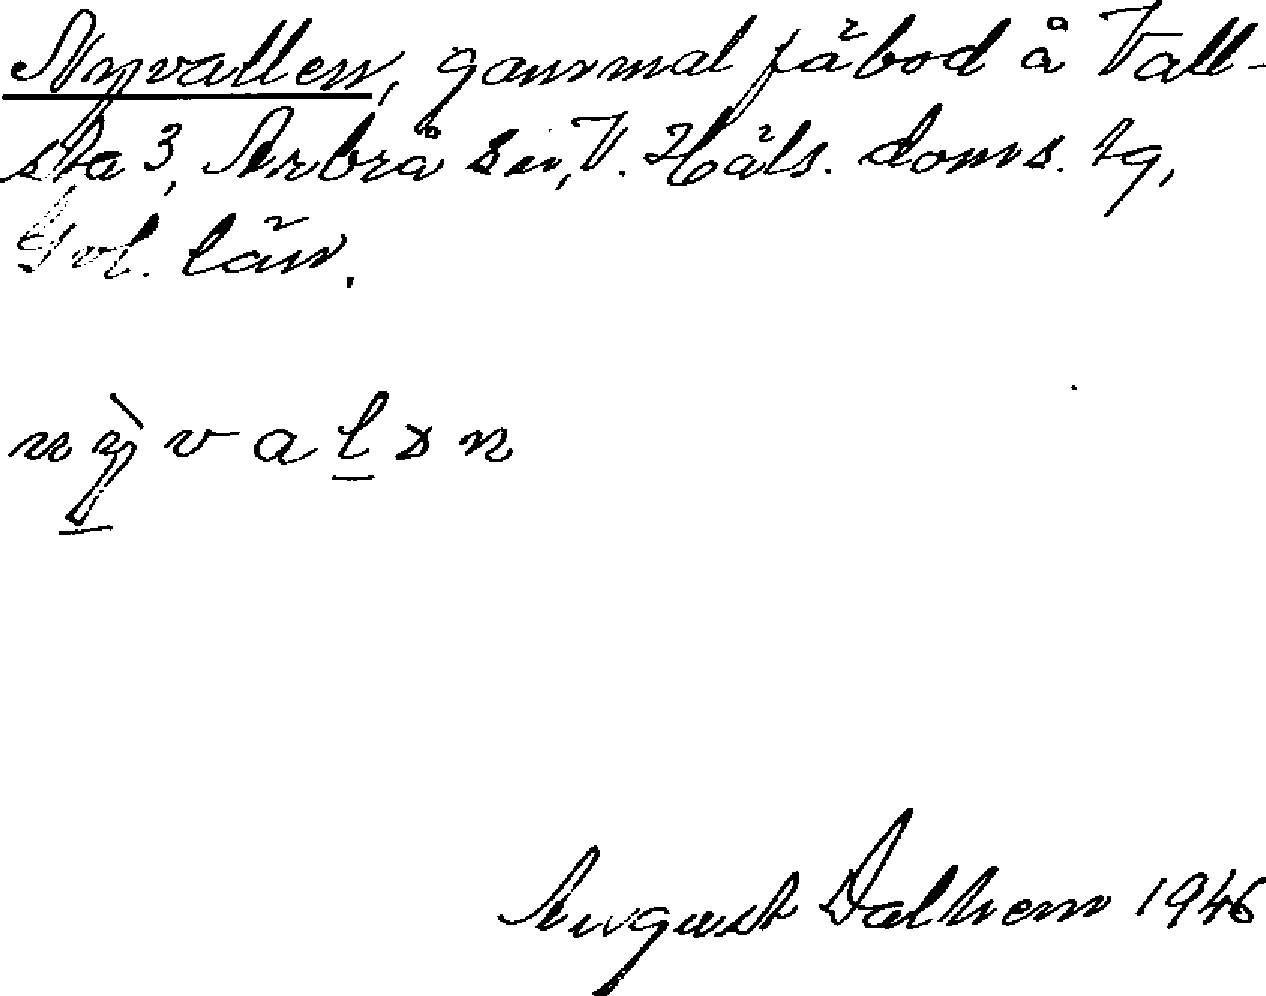 Nyvallen, gammal fäbod å Vall-
sta 3, Arbrå sn, V. Häls. doms. tg,
Gvl. län.
nỳvalən
August Dalhem 1946